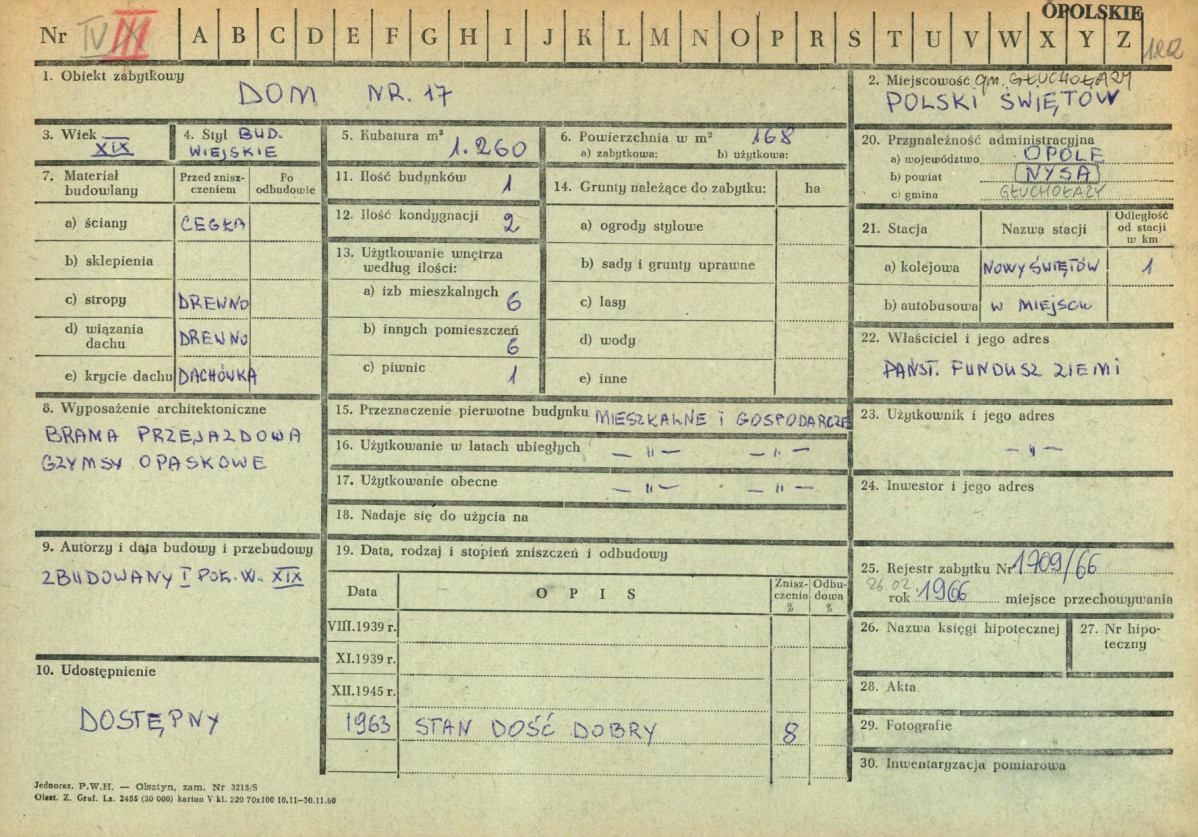 OPOLSKIE
Nr IV III A B C D E F G H I J K L M N O P R S T U V W X Y Z
1. Obiekt zabytkowy
DOM NR. 17
2. Miejscowość gm. GŁUCHOŁAZY
POLSKI ŚWIĘTÓW
3. Wiek
XIX
4. Styl BUD.
WIEJSKIE
5. Kubatura m³
1.260
6. Powierzchnia w m² 168
a) zabytkowa: b) użytkowa:
7. Materiał budowlany
Przed zniszczeniem
Po odbudowie
a) ściany CEGŁA
b) sklepienia
c) stropy DREWNO
d) wiązania dachu DREWNO
e) krycie dachu DACHÓWKA
8. Wyposażenie architektoniczne
BRAMA PRZEJAZDOWA
GZYMSY OPASKOWE
9. Autorzy i data budowy i przebudowy
ZBUDOWANY I POŁ. W. XIX
10. Udostępnienie
DOSTĘPNY
11. Ilość budynków 1
12. Ilość kondygnacji 2
13. Użytkowanie wnętrza
według ilości:
a) izb mieszkalnych 6
b) innych pomieszczeń 6
c) piwnic 1
14. Grunty należące do zabytku: ha
a) ogrody stylowe
b) sady i grunty uprawne
c) lasy
d) wody
e) inne
15. Przeznaczenie pierwotne budynku MIESZKALNE i GOSPODARCZE
16. Użytkowanie w latach ubiegłych — " — — " —
17. Użytkowanie obecne — " — — " —
18. Nadaje się do użycia na
19. Data, rodzaj i stopień zniszczeń i odbudowy
Data O P I S Zniszczenia % Odbudowa %
VIII.1939 r.
XI.1939 r.
XII.1945 r.
1963 STAN DOŚĆ DOBRY 8
20. Przynależność administracyjna
a) województwo OPOLE
b) powiat NYSA
c) gmina GŁUCHOŁAZY
21. Stacja Nazwa stacji Odległość od stacji w km
a) kolejowa NOWY ŚWIĘTÓW 1
b) autobusowa W MIEJSCU
22. Właściciel i jego adres
PAŃST. FUNDUSZ ZIEMI
23. Użytkownik i jego adres
— " —
24. Inwestor i jego adres
25. Rejestr zabytku Nr 1709/66
26.02.
rok 1966 miejsce przechowywania
26. Nazwa księgi hipotecznej
27. Nr hipoteczny
28. Akta
29. Fotografie
30. Inwentaryzacja pomiarowa
Jednoraz. P.W.H. — Olsztyn, zam. Nr 3215/S
Olszt. Z. Graf. Lz. 2485 (30 000) karton V kl. 220 70x100 10.11—30.11.60